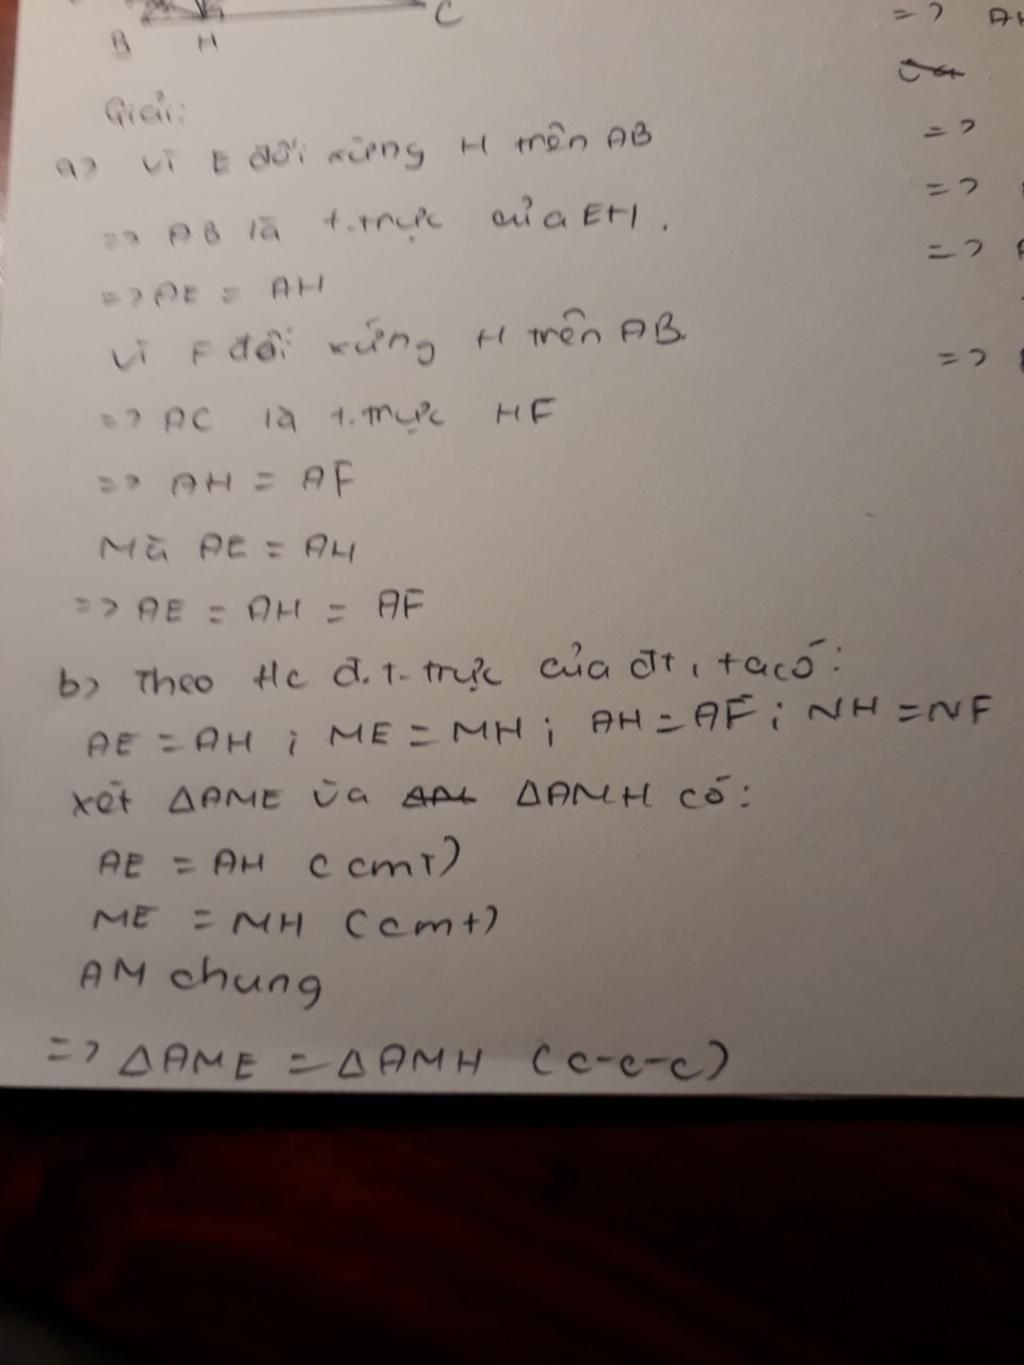 B H C
Giải:
a) Vì E đối xứng H trên AB
=> AB là t.trực của EH.
=> AE = AH
Vì F đối xứng H trên AB.
=> AC là t.trực HF
=> AH = AF
Mà AE = AH
=> AE = AH = AF
b) Theo t/c đ.t.trực của đt, ta có:
AE = AH ; ME = MH ; AH = AF ; NH = NF
xét ΔAME và ΔAMH có:
AE = AH (cmt)
ME = MH (cmt)
AM chung
=> ΔAME = ΔAMH (c-c-c)
=> AH
=>
=>
=>
=>